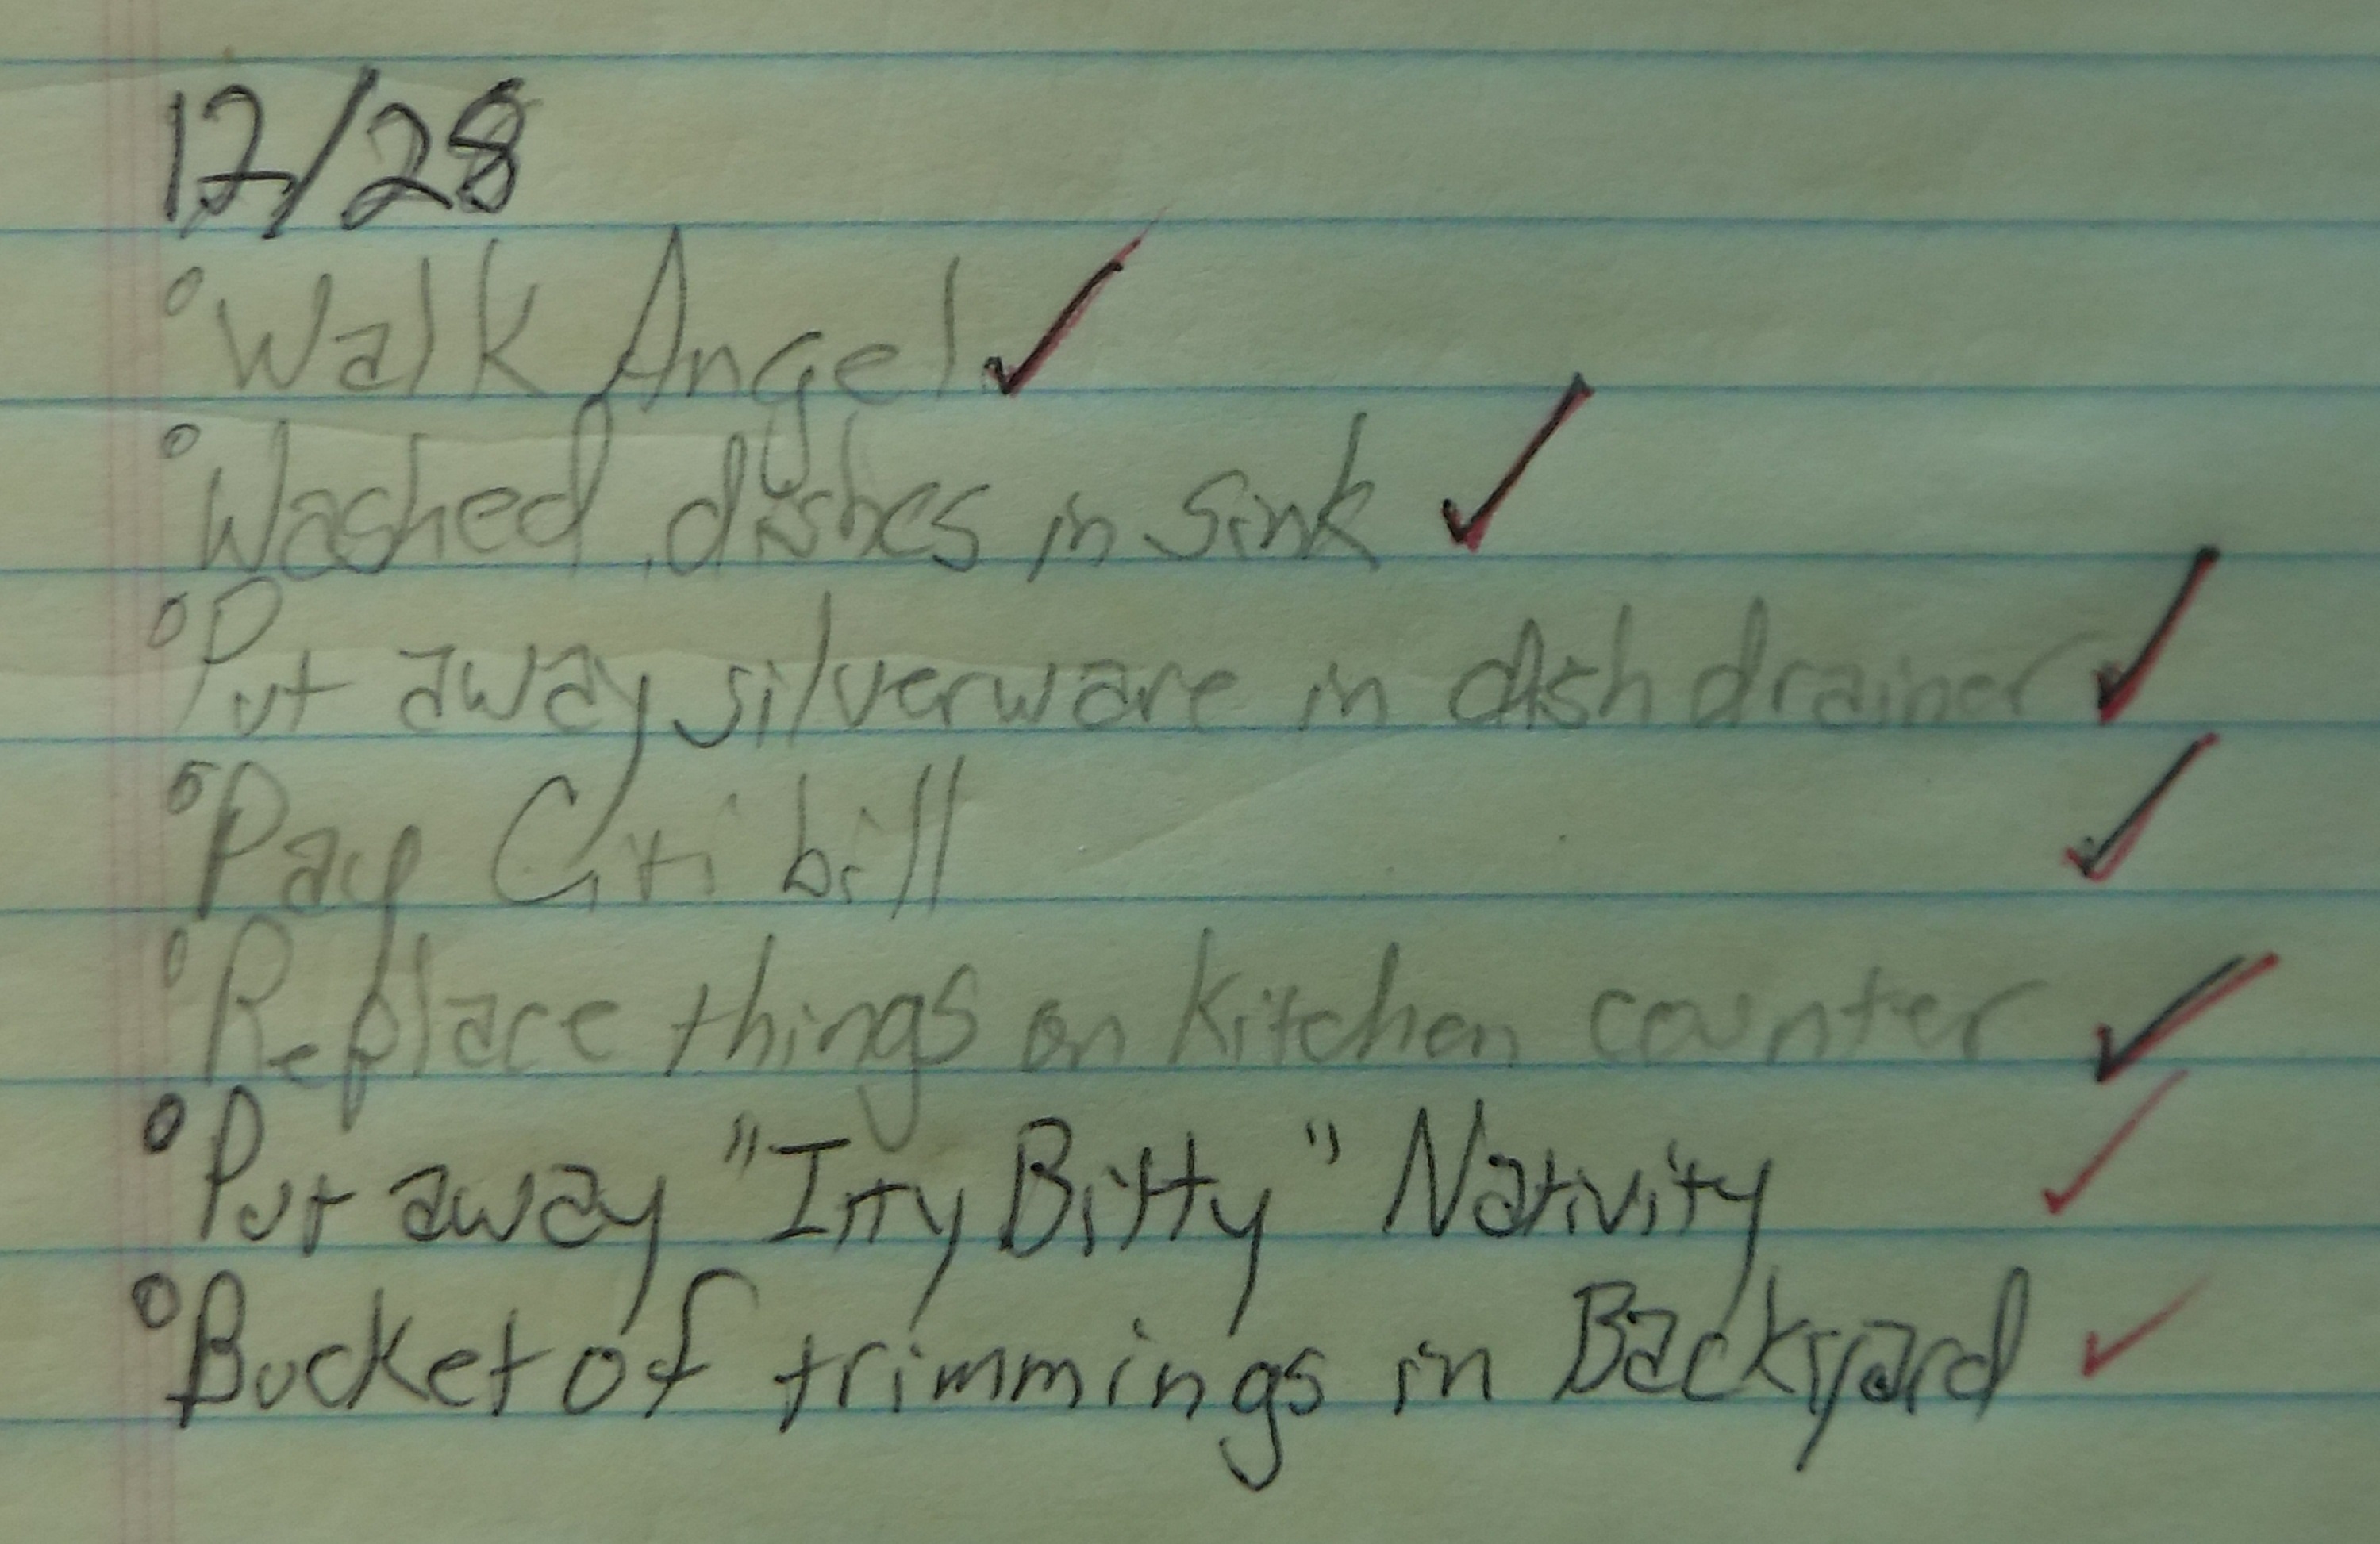 12/28
° Walk Angel ✓
° Washed dishes in sink ✓
° Put away silverware in dish drainer ✓
° Pay Citi bill ✓
° Replace things on kitchen counter ✓
° Put away "Itty Bitty" Nativity ✓
° Bucket of trimmings in Backyard ✓